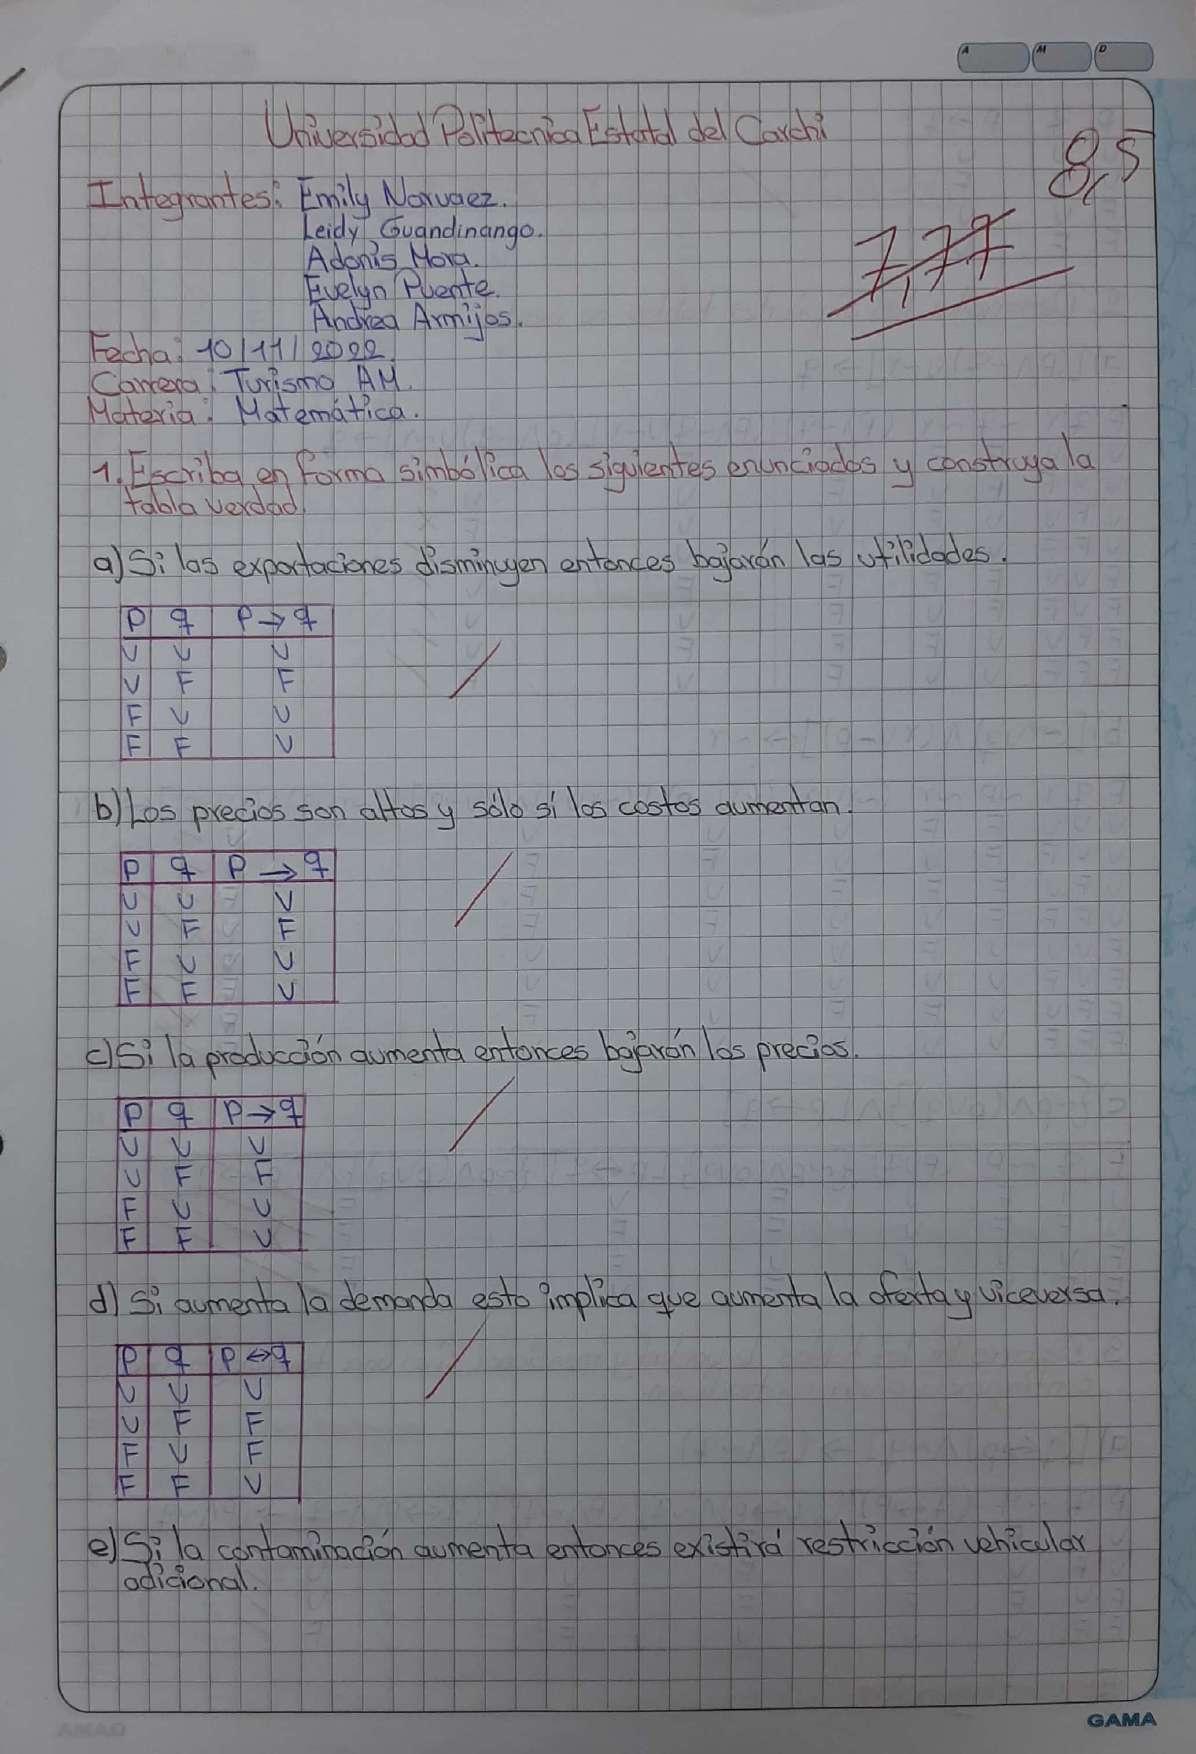 A M D
Universidad Politecnica Estatal del Carchi
8,5
Integrantes: Emily Narvaez.
Leidy Guandinango.
7,77
Adonis Mora.
Evelyn Puente.
Andrea Armijos.
Fecha: 10/11/2022.
Carrera: Turismo AM.
Materia: Matemática.
1. Escriba en forma simbólica los siguientes enunciados y construya la
tabla verdad.
a) Si las exportaciones disminuyen entonces bajarán las utilidades.
P q P → q
V V V
V F F
F V V
F F V
b) Los precios son altos y sólo si los costos aumentan.
P q P → q
V V V
V F F
F V V
F F V
c) Si la producción aumenta entonces bajarán los precios.
P q P → q
V V V
V F F
F V V
F F V
d) Si aumenta la demanda esto implica que aumenta la oferta y viceversa.
P q P ↔ q
V V V
V F F
F V F
F F V
e) Si la contaminación aumenta entonces existirá restricción vehicular
adicional.
GAMA